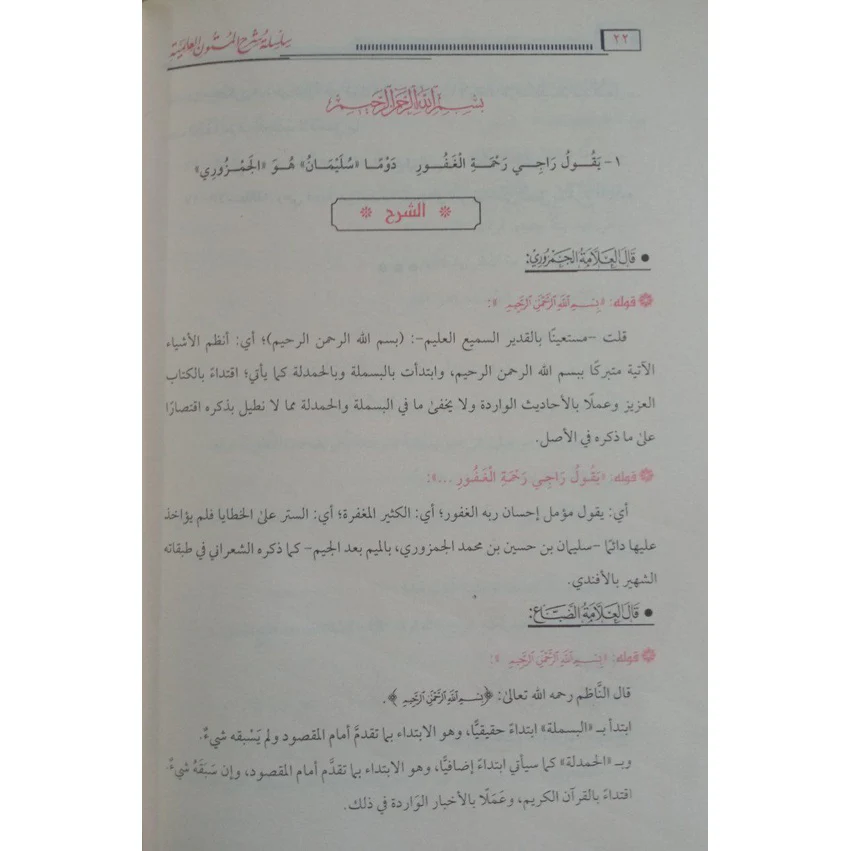 ٢٢
سلسلة شرح المتون العالمية
بسم الله الرحمن الرحيم
١- يَقُولُ رَاجِي رَحْمَةِ الْغَفُورِ دَوْمًا «سُلَيْمَانُ» هُوَ «الجَمْزُورِي»
* الشرح *
• قَالَ العَلَّامَةُ الجَمْزُورِيُّ:
قوله: «بِسْمِ اللَّهِ الرَّحْمَٰنِ الرَّحِيمِ»:
قلت –مستعينًا بالقدير السميع العليم–: (بسم الله الرحمن الرحيم)؛ أي: أنظم الأشياء
الآتية متبركًا ببسم الله الرحمن الرحيم، وابتدأت بالبسملة وبالحمدلة كما يأتي؛ اقتداءً بالكتاب
العزيز وعملًا بالأحاديث الواردة ولا يخفىٰ ما في البسملة والحمدلة مما لا نطيل بذكره اقتصارًا
علىٰ ما ذكره في الأصل.
قوله: «يَقُولُ رَاجِي رَحْمَةِ الْغَفُورِ ...»:
أي: يقول مؤمل إحسان ربه الغفور؛ أي: الكثير المغفرة؛ أي: الستر علىٰ الخطايا فلم يؤاخذ
عليها دائمًا –سليمان بن حسين بن محمد الجمزوري، بالميم بعد الجيم– كما ذكره الشعراني في طبقاته
الشهير بالأفندي.
• قَالَ العَلَّامَةُ الضَّبَّاع:
قوله: «بِسْمِ اللَّهِ الرَّحْمَٰنِ الرَّحِيمِ»:
قال النَّاظم رحمه الله تعالىٰ: ﴿بِسْمِ اللَّهِ الرَّحْمَٰنِ الرَّحِيمِ﴾.
ابتدأ بـ «البسملة» ابتداءً حقيقيًّا، وهو الابتداء بما تقدمَّ أمام المقصود ولم يَسْبقه شيءٌ.
وبـ «الحمدلة» كما سيأتي ابتداءً إضافيًّا، وهو الابتداء بما تقدَّم أمام المقصود، وإن سَبَقَهُ شيءٌ.
اقتداءً بالقرآن الكريم، وعَمَلًا بالأخبار الوَاردة في ذلك.